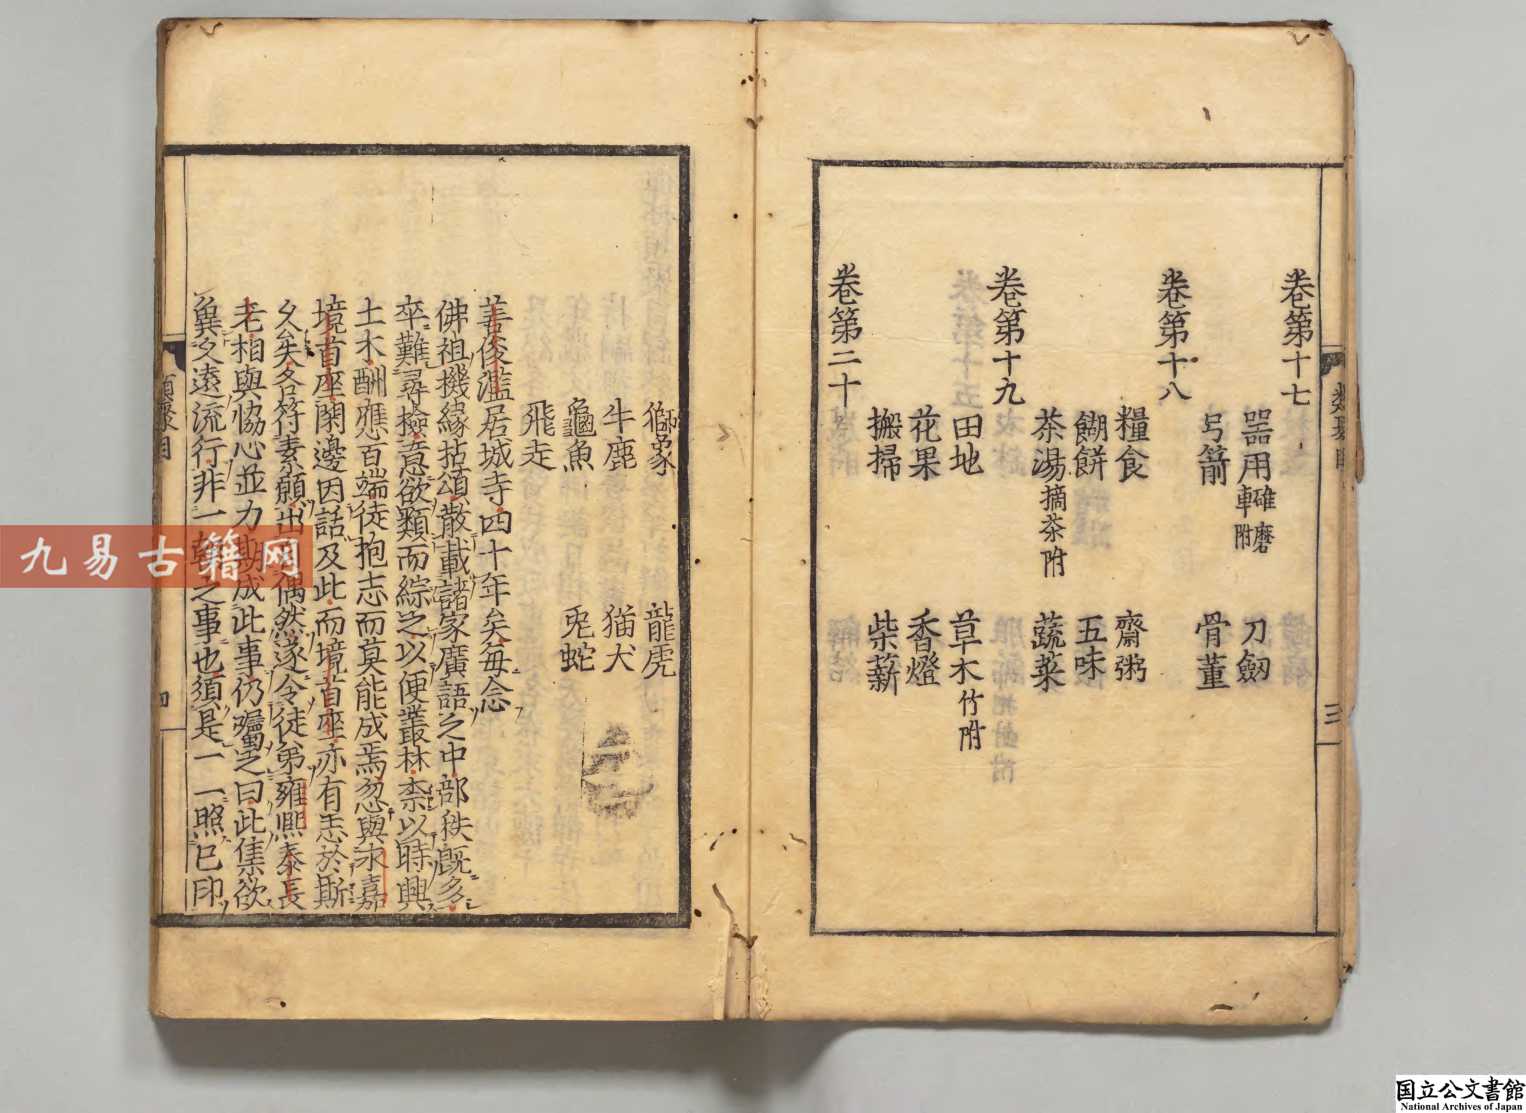 卷第十七
器用碓磨車附 刀劒
弓箭 骨董
卷第十八
糧食 齋粥
餬餅 五味
茶湯摘茶附 蔬菜
卷第十九
田地 草木竹附
花果 香燈
搬掃 柴薪
卷第二十
獅象 龍虎
牛鹿 猫犬
龜魚 兎蛇
飛走
善俊濫居城寺四十年矣每念
佛祖機緣拈頌散載諸家廣語之中部秩既多
卒難尋檢意欲類而綜之以便叢林柰以時興
土木酬應百端徒抱志而莫能成焉忽與永嘉
境首座閑邊因話及此而境首座亦有志於斯
久矣各符素願出偶然遂令徒弟雍熙泰長
老相與恊心並力期成此事仍囑之曰此集欲
異乂遠流行非一朝之事也須是一一照已印
類聚目
三
四
九易古籍网
国立公文書館
National Archives of Japan